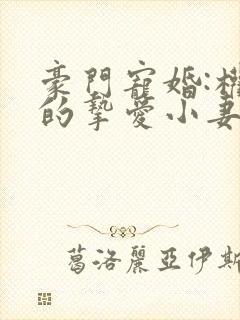 豪門寵婚:
的摯愛小妻
葛洛麗亞伊斯